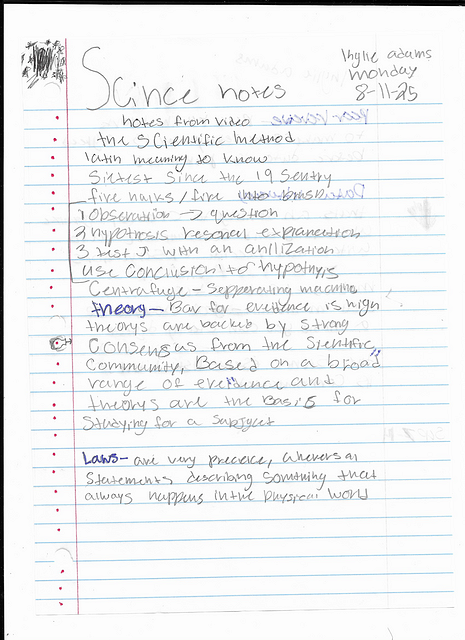 Kylie adams
monday
8-11-25
Scince notes
notes from video
the Scientific method
latin meaning to know
Sietest Since the 19 Sentry
five hulks / five
1 Obseration → question
2 hypothosis resonal explaneation
3 test it with an anilization
use Conclusion to hypothysis
Centrafuge - Sepperating machine
theory - Bar for evedence is high
theorys are backeb by strong
Consensus from the Sientific
Community, Based on a broad
range of evedence and
theorys are the Basis for
Studying for a Subject
Laws - are very precice, universal
Statements describing Somthing that
always happens in the physical world